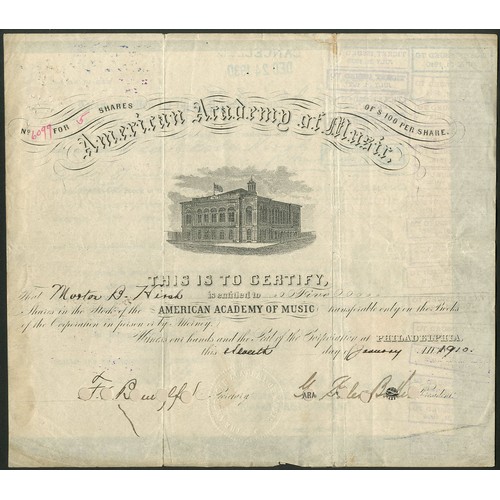 CANCELLED
DEC 24 1930
No. 6099 FOR 5 SHARES OF $100 PER SHARE.
American Academy of Music.
THIS IS TO CERTIFY,
That Morton B. Hirsh is entitled to Five
Shares in the Stock of the AMERICAN ACADEMY OF MUSIC transferable only on the Books
of the Corporation in person or by Attorney.
Witness our hands and the Seal of the Corporation at PHILADELPHIA,
this eleventh day of January 1910.
F. C.